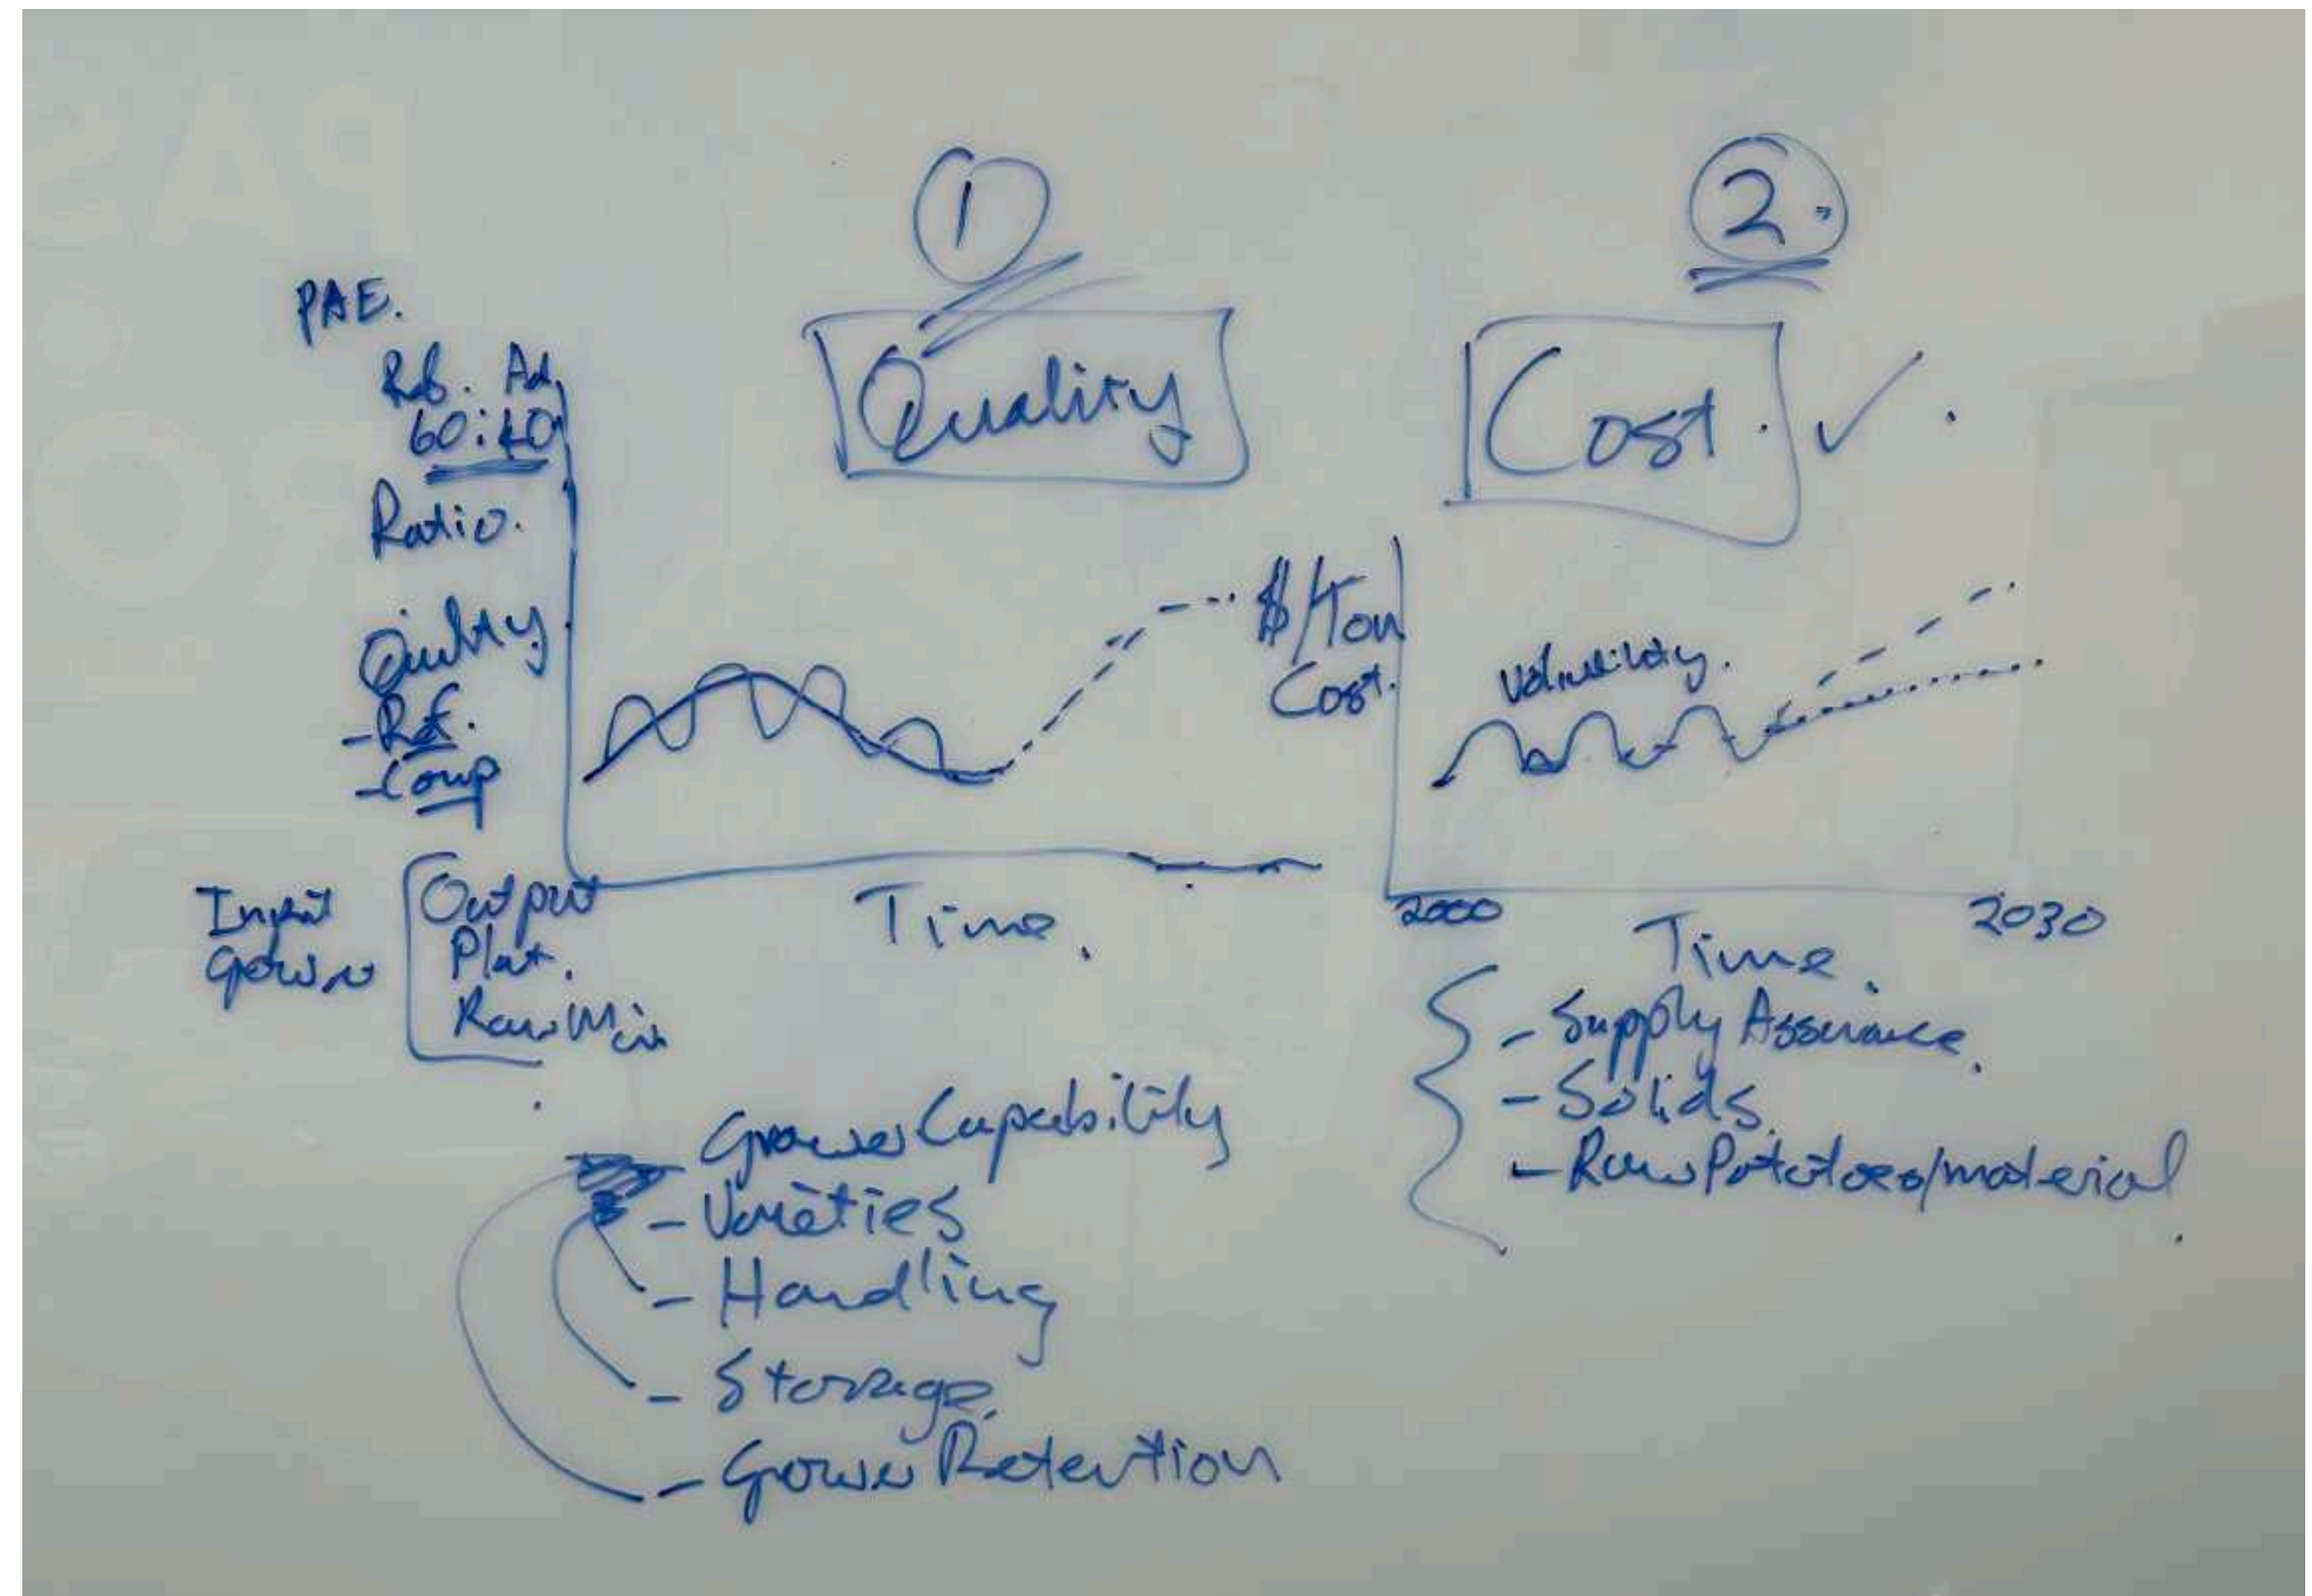 1
Quality
PAE.
60:40
Ratio.
Quality
- Ref.
- Comp
Time.
Input
Grower
Output
Plat.
Raw Mix
Grower Capability
- Varieties
- Handling
- Storage.
- Grower Retention
2.
Cost.
$/Ton
Cost.
Volatility.
2000
2030
Time.
- Supply Assurance.
- Solids.
- Raw Potatoes/material